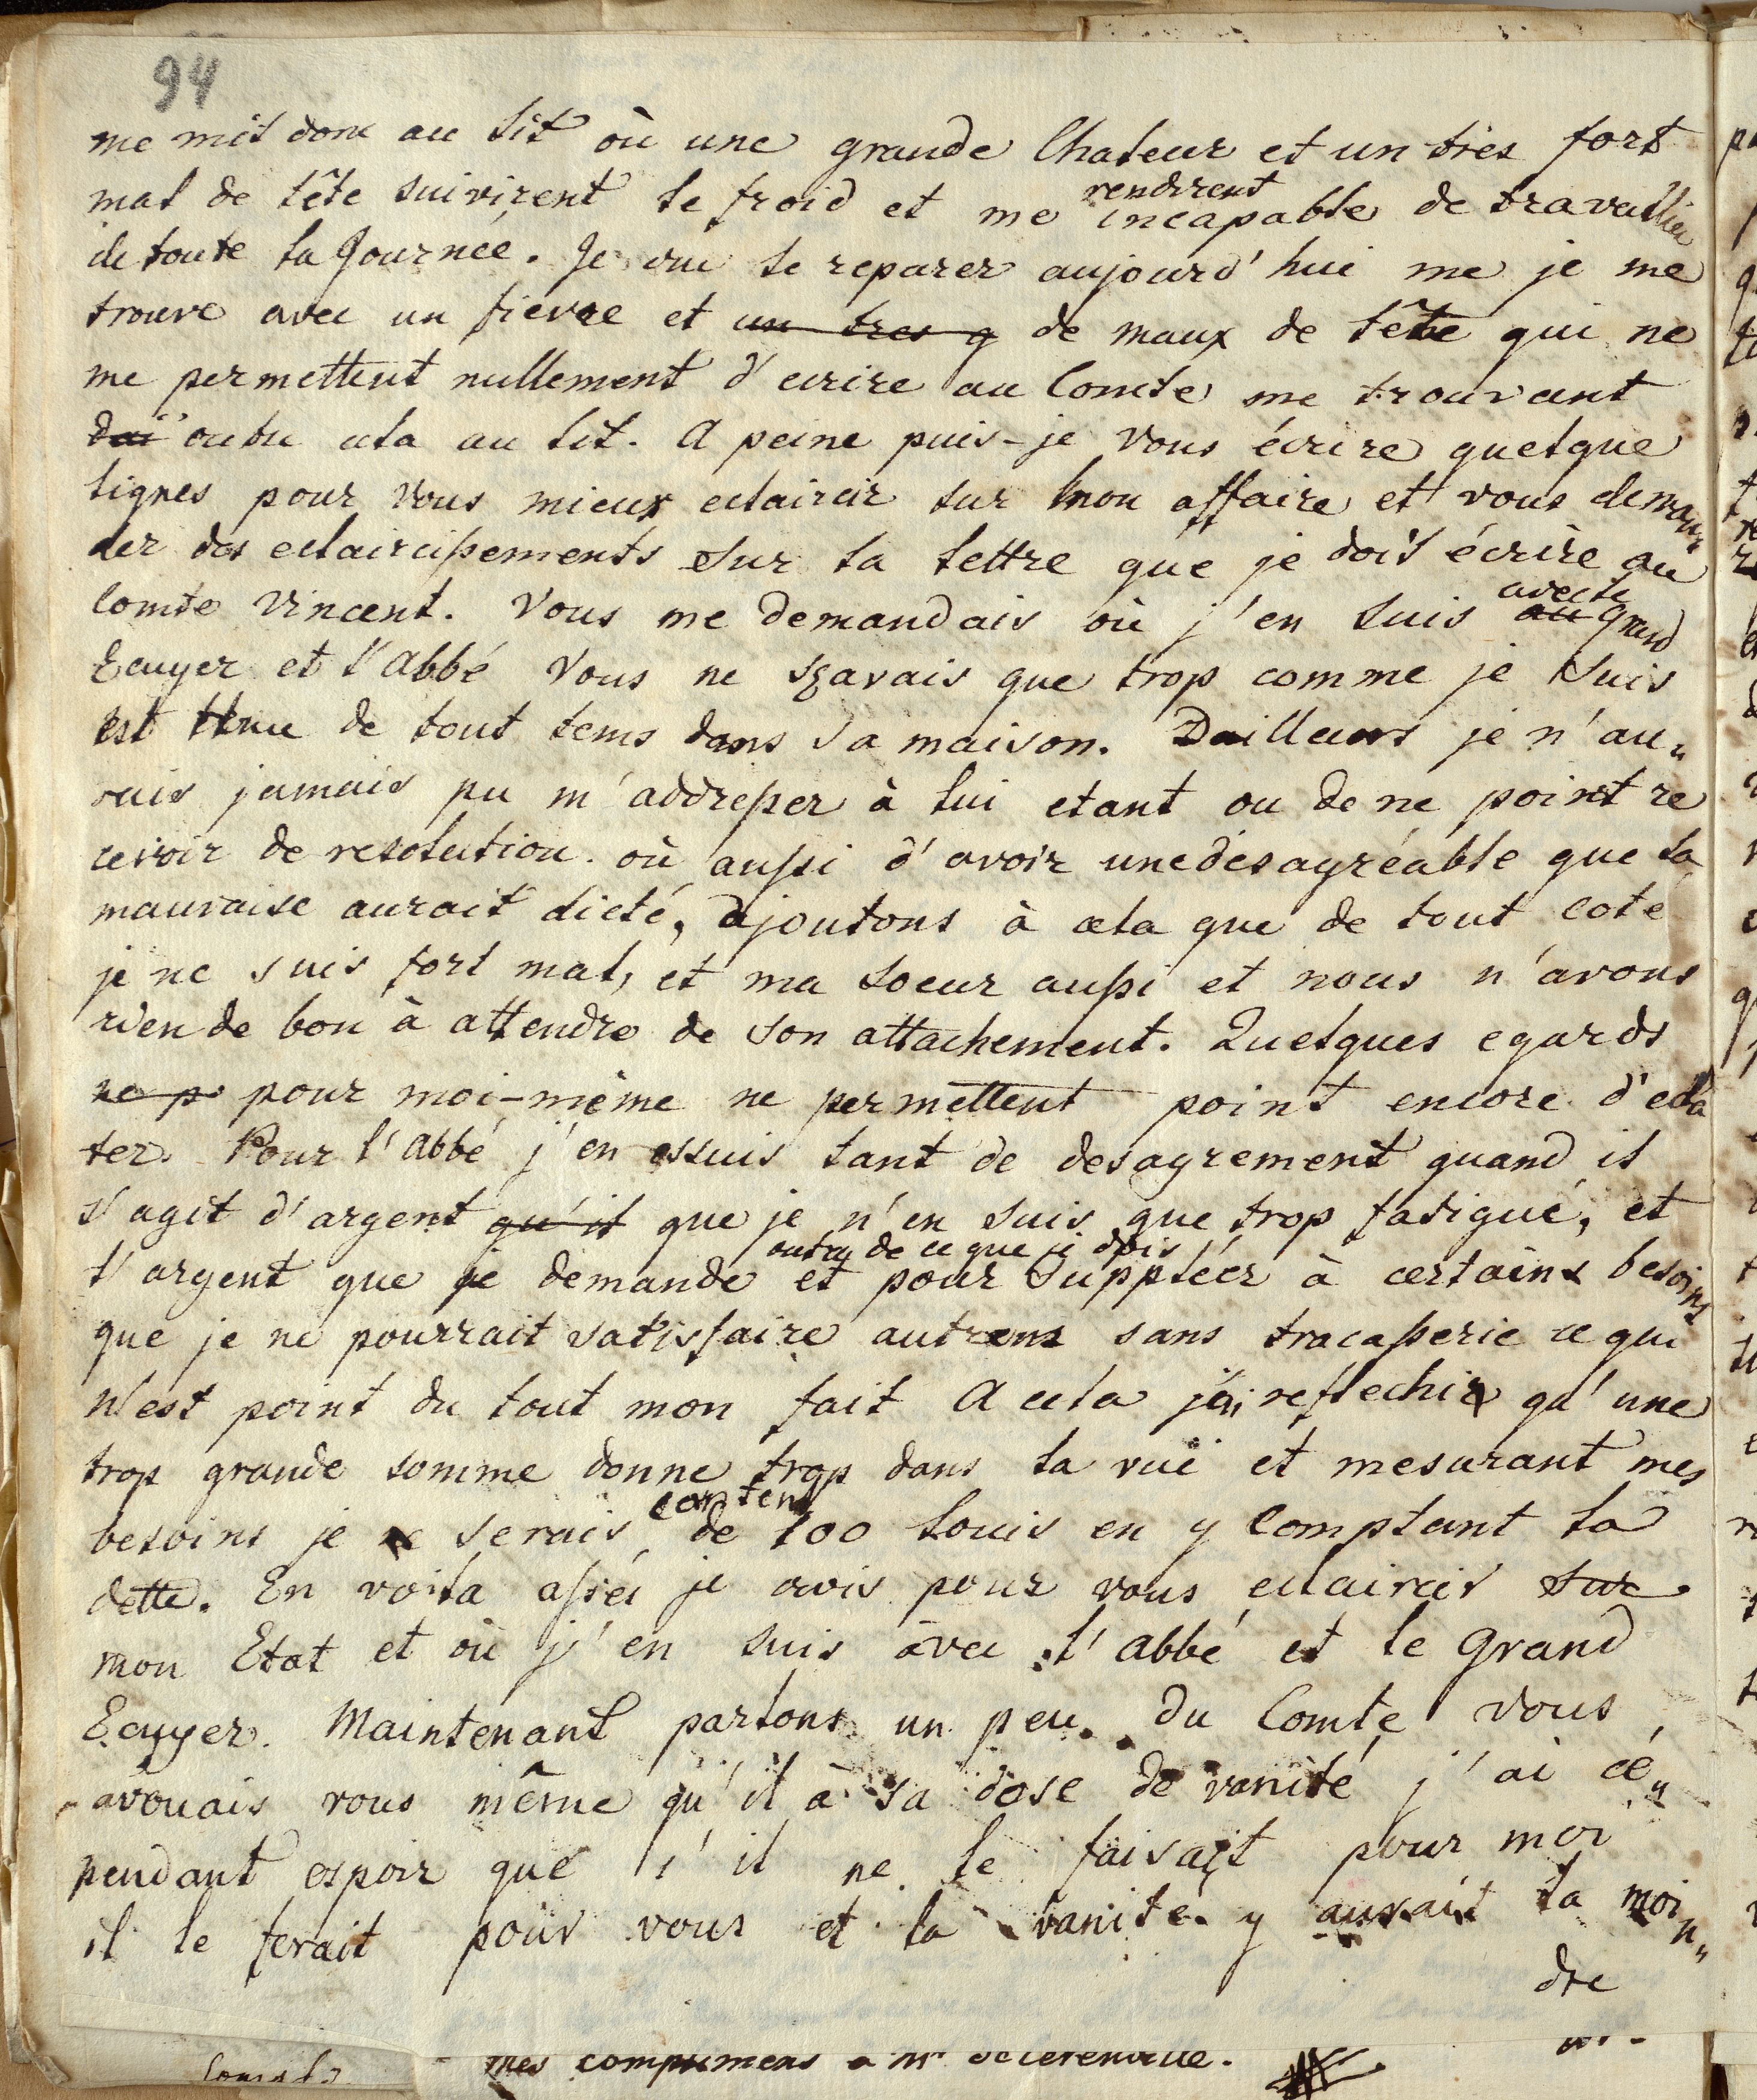 94
me mit donc au lit où une grande Chaleur et un tres fort
mal de tête suivirent le froid et me rendirent incapable de travailler
de toute la Journée. Je crue le reparer aujourd'hui me je me
trouve avec un fievre et un tres g de maux de tête qui ne
me permettent nullement d'ecrire au Comte me trouvant
outre cela au lit. A peine puis-je vous écrire quelque
lignes pour vous mieux eclaircir sur mon affaire et vous deman
der des eclaircissements sur la lettre que je doit écrire au
Comte Vincent. Vous me demandais où j'en suis au avec le grand
Ecuyer et l'Abbé Vous ne sçavais que trop comme je suis
est tenu de tout tems dans sa maison. Dailleurs je n'au„
rais jamais pu m'addresser à lui etant ou de ne point re
cevoir de resolution. où aussi d'avoir une désagréable que la
mauvaise aurait dicté, ajoutons à cela que de tout coté
je ne suis fort mal, et ma soeur aussi et nous n'avons
rien de bon à attendre de son attachement. Quelques egards
ne p pour moi-même ne permettent point encore d'ecla
ter. Pour l'abbé j'en essuis tant de desagrement quand il
s'agit d'argent qu'il que je n'en suis que trop fatigué, et
l'argent que je demande et outre de ce que je dois pour suppléer à certains besoins
que je ne pourrait satisfaire autrem sans tracasserie ce qui
n'est point du tout mon fait A cela j'ai reflechir qu'une
trop grande somme donne trop dans la vuë et mesurant mes
besoins je serais content de 100 Louis en y Comptant la
dette. En voila assés je crois pour vous eclaircir sur
mon Etat et où j'en suis avec l'abbé et le Grand
Ecuyer. Maintenant parlons un peu du Comte vous
avouais vous même qu'il a sa dose de vanité j'ai ce„
pendant espoir que s'il ne le faisait pour moi
il le ferait pour vous et la vanité y aurait la moin„
dre
mes complimens a Mr